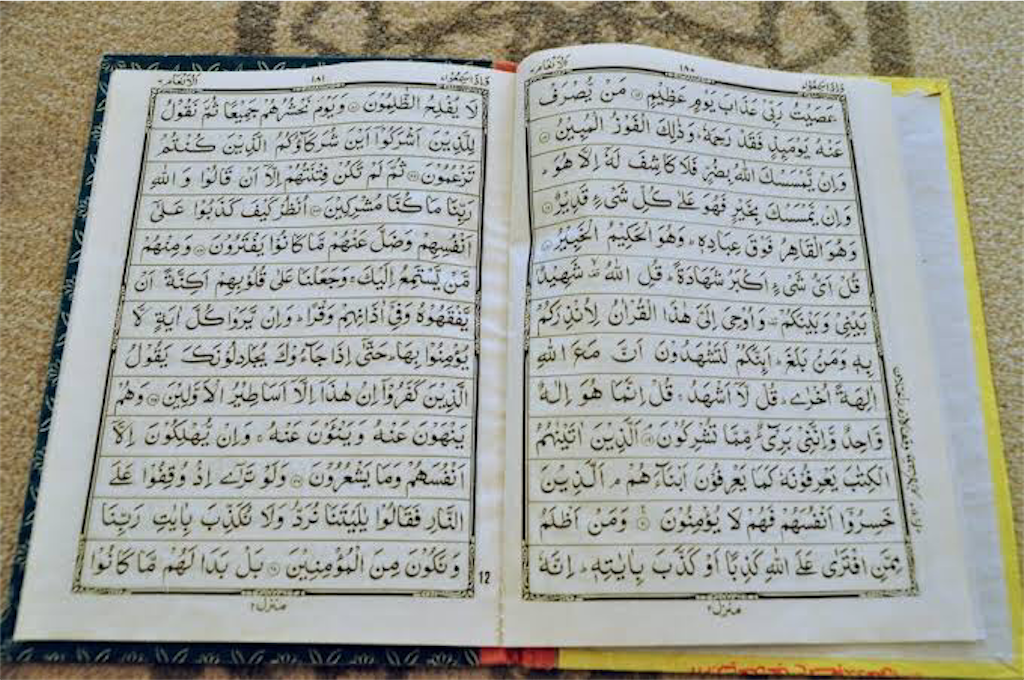 الانعام ٦
١٨٠
واذا سمعوا ٧
عَصَيْتُ رَبِّيْ عَذَابَ يَوْمٍ عَظِيْمٍ ۝ مَنْ يُّصْرَفْ
عَنْهُ يَوْمَىِٕذٍ فَقَدْ رَحِمَهٗ ؕ وَذٰلِكَ الْفَوْزُ الْمُبِيْنُ ۝
وَاِنْ يَّمْسَسْكَ اللّٰهُ بِضُرٍّ فَلَا كَاشِفَ لَهٗۤ اِلَّا هُوَ ؕ
وَاِنْ يَّمْسَسْكَ بِخَيْرٍ فَهُوَ عَلٰى كُلِّ شَىْءٍ قَدِيْرٌ ۝
وَهُوَ الْقَاهِرُ فَوْقَ عِبَادِهٖ ؕ وَهُوَ الْحَكِيْمُ الْخَبِيْرُ ۝
قُلْ اَىُّ شَىْءٍ اَكْبَرُ شَهَادَةً ؕ قُلِ اللّٰهُ شَهِيْدٌۢ
بَيْنِيْ وَبَيْنَكُمْ وَاُوْحِىَ اِلَىَّ هٰذَا الْقُرْاٰنُ لِاُنْذِرَكُمْ
بِهٖ وَمَنْۢ بَلَغَ ؕ اَىِٕنَّكُمْ لَتَشْهَدُوْنَ اَنَّ مَعَ اللّٰهِ
اٰلِهَةً اُخْرٰى ؕ قُلْ لَّاۤ اَشْهَدُ ۚ قُلْ اِنَّمَا هُوَ اِلٰهٌ
وَّاحِدٌ وَّاِنَّنِيْ بَرِىْٓءٌ مِّمَّا تُشْرِكُوْنَ ۝ اَلَّذِيْنَ اٰتَيْنٰهُمُ
الْكِتٰبَ يَعْرِفُوْنَهٗ كَمَا يَعْرِفُوْنَ اَبْنَآءَهُمْ ۘ اَلَّذِيْنَ
خَسِرُوْۤا اَنْفُسَهُمْ فَهُمْ لَا يُؤْمِنُوْنَ ۝ وَمَنْ اَظْلَمُ
مِمَّنِ افْتَرٰى عَلَى اللّٰهِ كَذِبًا اَوْ كَذَّبَ بِاٰيٰتِهٖ ؕ اِنَّهٗ
منزل ٢
الانعام ٦
١٨١
واذا سمعوا ٧
لَا يُفْلِحُ الظّٰلِمُوْنَ ۝ وَيَوْمَ نَحْشُرُهُمْ جَمِيْعًا ثُمَّ نَقُوْلُ
لِلَّذِيْنَ اَشْرَكُوْۤا اَيْنَ شُرَكَآؤُكُمُ الَّذِيْنَ كُنْتُمْ
تَزْعُمُوْنَ ۝ ثُمَّ لَمْ تَكُنْ فِتْنَتُهُمْ اِلَّاۤ اَنْ قَالُوْا وَاللّٰهِ
رَبِّنَا مَا كُنَّا مُشْرِكِيْنَ ۝ اُنْظُرْ كَيْفَ كَذَبُوْا عَلٰۤى
اَنْفُسِهِمْ وَضَلَّ عَنْهُمْ مَّا كَانُوْا يَفْتَرُوْنَ ۝ وَمِنْهُمْ
مَّنْ يَّسْتَمِعُ اِلَيْكَ ۚ وَجَعَلْنَا عَلٰى قُلُوْبِهِمْ اَكِنَّةً اَنْ
يَّفْقَهُوْهُ وَفِيْۤ اٰذَانِهِمْ وَقْرًا ؕ وَاِنْ يَّرَوْا كُلَّ اٰيَةٍ لَّا
يُؤْمِنُوْا بِهَا ؕ حَتّٰۤى اِذَا جَآءُوْكَ يُجَادِلُوْنَكَ يَقُوْلُ
الَّذِيْنَ كَفَرُوْۤا اِنْ هٰذَاۤ اِلَّاۤ اَسَاطِيْرُ الْاَوَّلِيْنَ ۝ وَهُمْ
يَنْهَوْنَ عَنْهُ وَيَنْـَٔوْنَ عَنْهُ ۚ وَاِنْ يُّهْلِكُوْنَ اِلَّاۤ
اَنْفُسَهُمْ وَمَا يَشْعُرُوْنَ ۝ وَلَوْ تَرٰۤى اِذْ وُقِفُوْا عَلَى
النَّارِ فَقَالُوْا يٰلَيْتَنَا نُرَدُّ وَلَا نُكَذِّبَ بِاٰيٰتِ رَبِّنَا
وَنَكُوْنَ مِنَ الْمُؤْمِنِيْنَ ۝ بَلْ بَدَا لَهُمْ مَّا كَانُوْا
12
منزل ٢